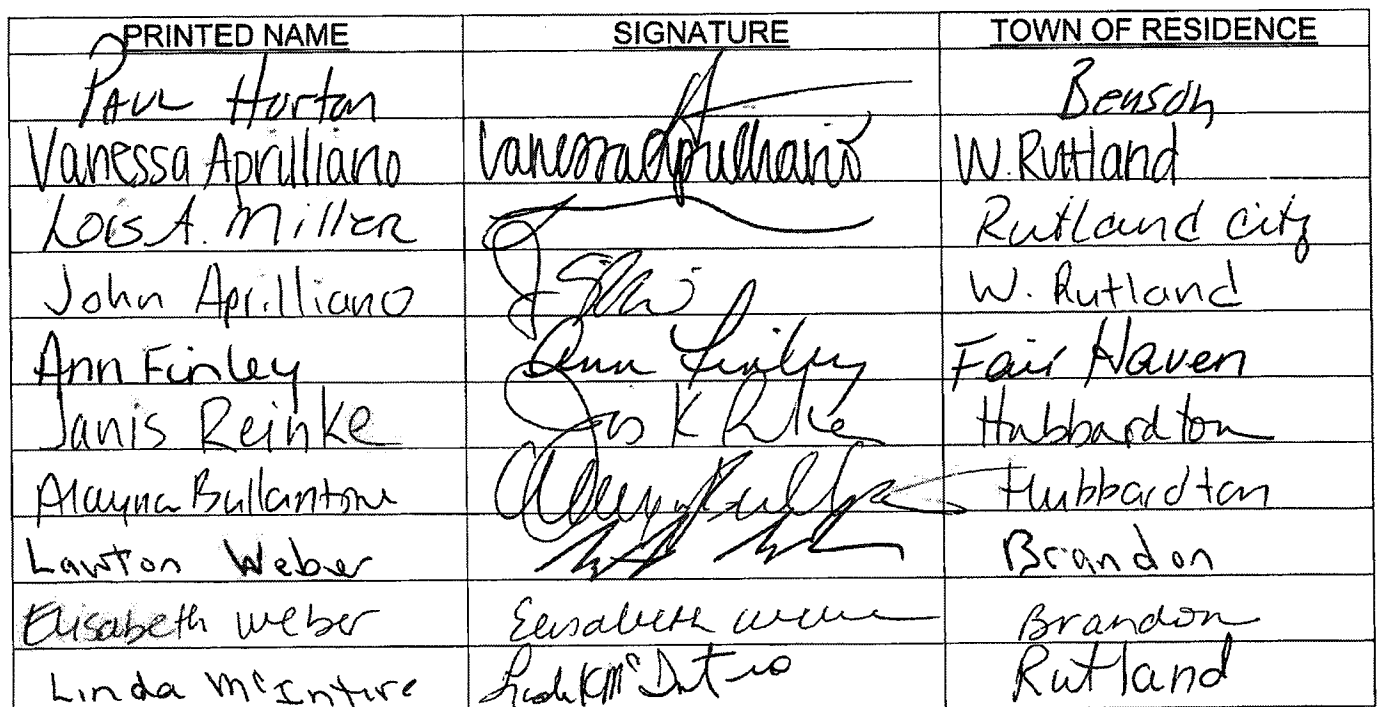 PRINTED NAME SIGNATURE TOWN OF RESIDENCE
PAUL Horton Benson
Vanessa Aprilliano Vanessa Aprilliano W. Rutland
Lois A. Miller Rutland City
John Aprilliano W. Rutland
Ann Finley Ann Finley Fair Haven
Janis Reinke Hubbardton
Alayna Bullantone Hubbardton
Lawton Weber Brandon
Elisabeth Weber Elisabeth Brandon
Linda McIntire Rutland